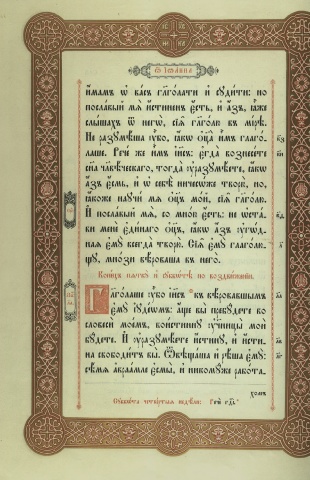 Ѿ Іѡанна
и҆́мамъ ѡ҆ ва́съ глаго́лати и҆ сꙋди́ти: но
посла́вый мѧ̀ и҆́стиненъ є҆́сть, и҆ а҆́зъ, ꙗ҆̀же
слы́шахъ ѿ негѡ̀, сїѧ̑ глаго́лю въ мі́рѣ.
Не разꙋмѣ́ша ᲂу҆̀бо, ꙗ҆́кѡ ѻ҆ц҃а̀ и҆̀мъ глаго́-
лаше. Рече́ же и҆̀мъ і҆и҃съ: є҆гда̀ вознесе́те
сн҃а чл҃вѣ́ческаго, тогда̀ ᲂу҆разꙋмѣ́ете, ꙗ҆́кѡ
а҆́зъ є҆́смь, и҆ ѡ҆ себѣ̀ ничесѡ́же творю̀, но,
ꙗ҆́коже наꙋчи́ мѧ ѻ҆ц҃ъ мо́й, сїѧ̑ глаго́лю.
И҆ посла́вый мѧ̀, со мно́ю є҆́сть: не ѡ҆ста́-
ви менѐ є҆ди́наго ѻ҆ц҃ъ, ꙗ҆́кѡ а҆́зъ ᲂу҆гѡ́д-
наѧ є҆мꙋ̀ всегда̀ творю̀. Сїѧ̑ є҆мꙋ̀ глаго́лю-
щꙋ, мно́зи вѣ́роваша въ него̀.
Коне́цъ паткꙋ̀ и҆ сꙋббѡ́тѣ по воздви́женїи.
Глаго́лаше ᲂу҆̀бо і҆и҃съ къ вѣ́ровавшымъ
є҆мꙋ̀ і҆ꙋде́ѡмъ: а҆́ще вы̀ пребꙋ́дете во
словесѝ мое́мъ, вои́стиннꙋ ᲂу҆чн҃цы̀ моѝ
бꙋ́дете. И҆ ᲂу҆разꙋмѣ́ете и҆́стинꙋ, и҆ и҆́сти-
на свободи́тъ вы̀. Ѿвѣща́ша и҆ рѣ́ша є҆мꙋ̀:
сѣ́мѧ а҆враа́мле є҆смы̀, и҆ никомꙋ́же рабо́та-
хомъ
Сꙋббѡ́та четве́ртыѧ недѣ́ли: